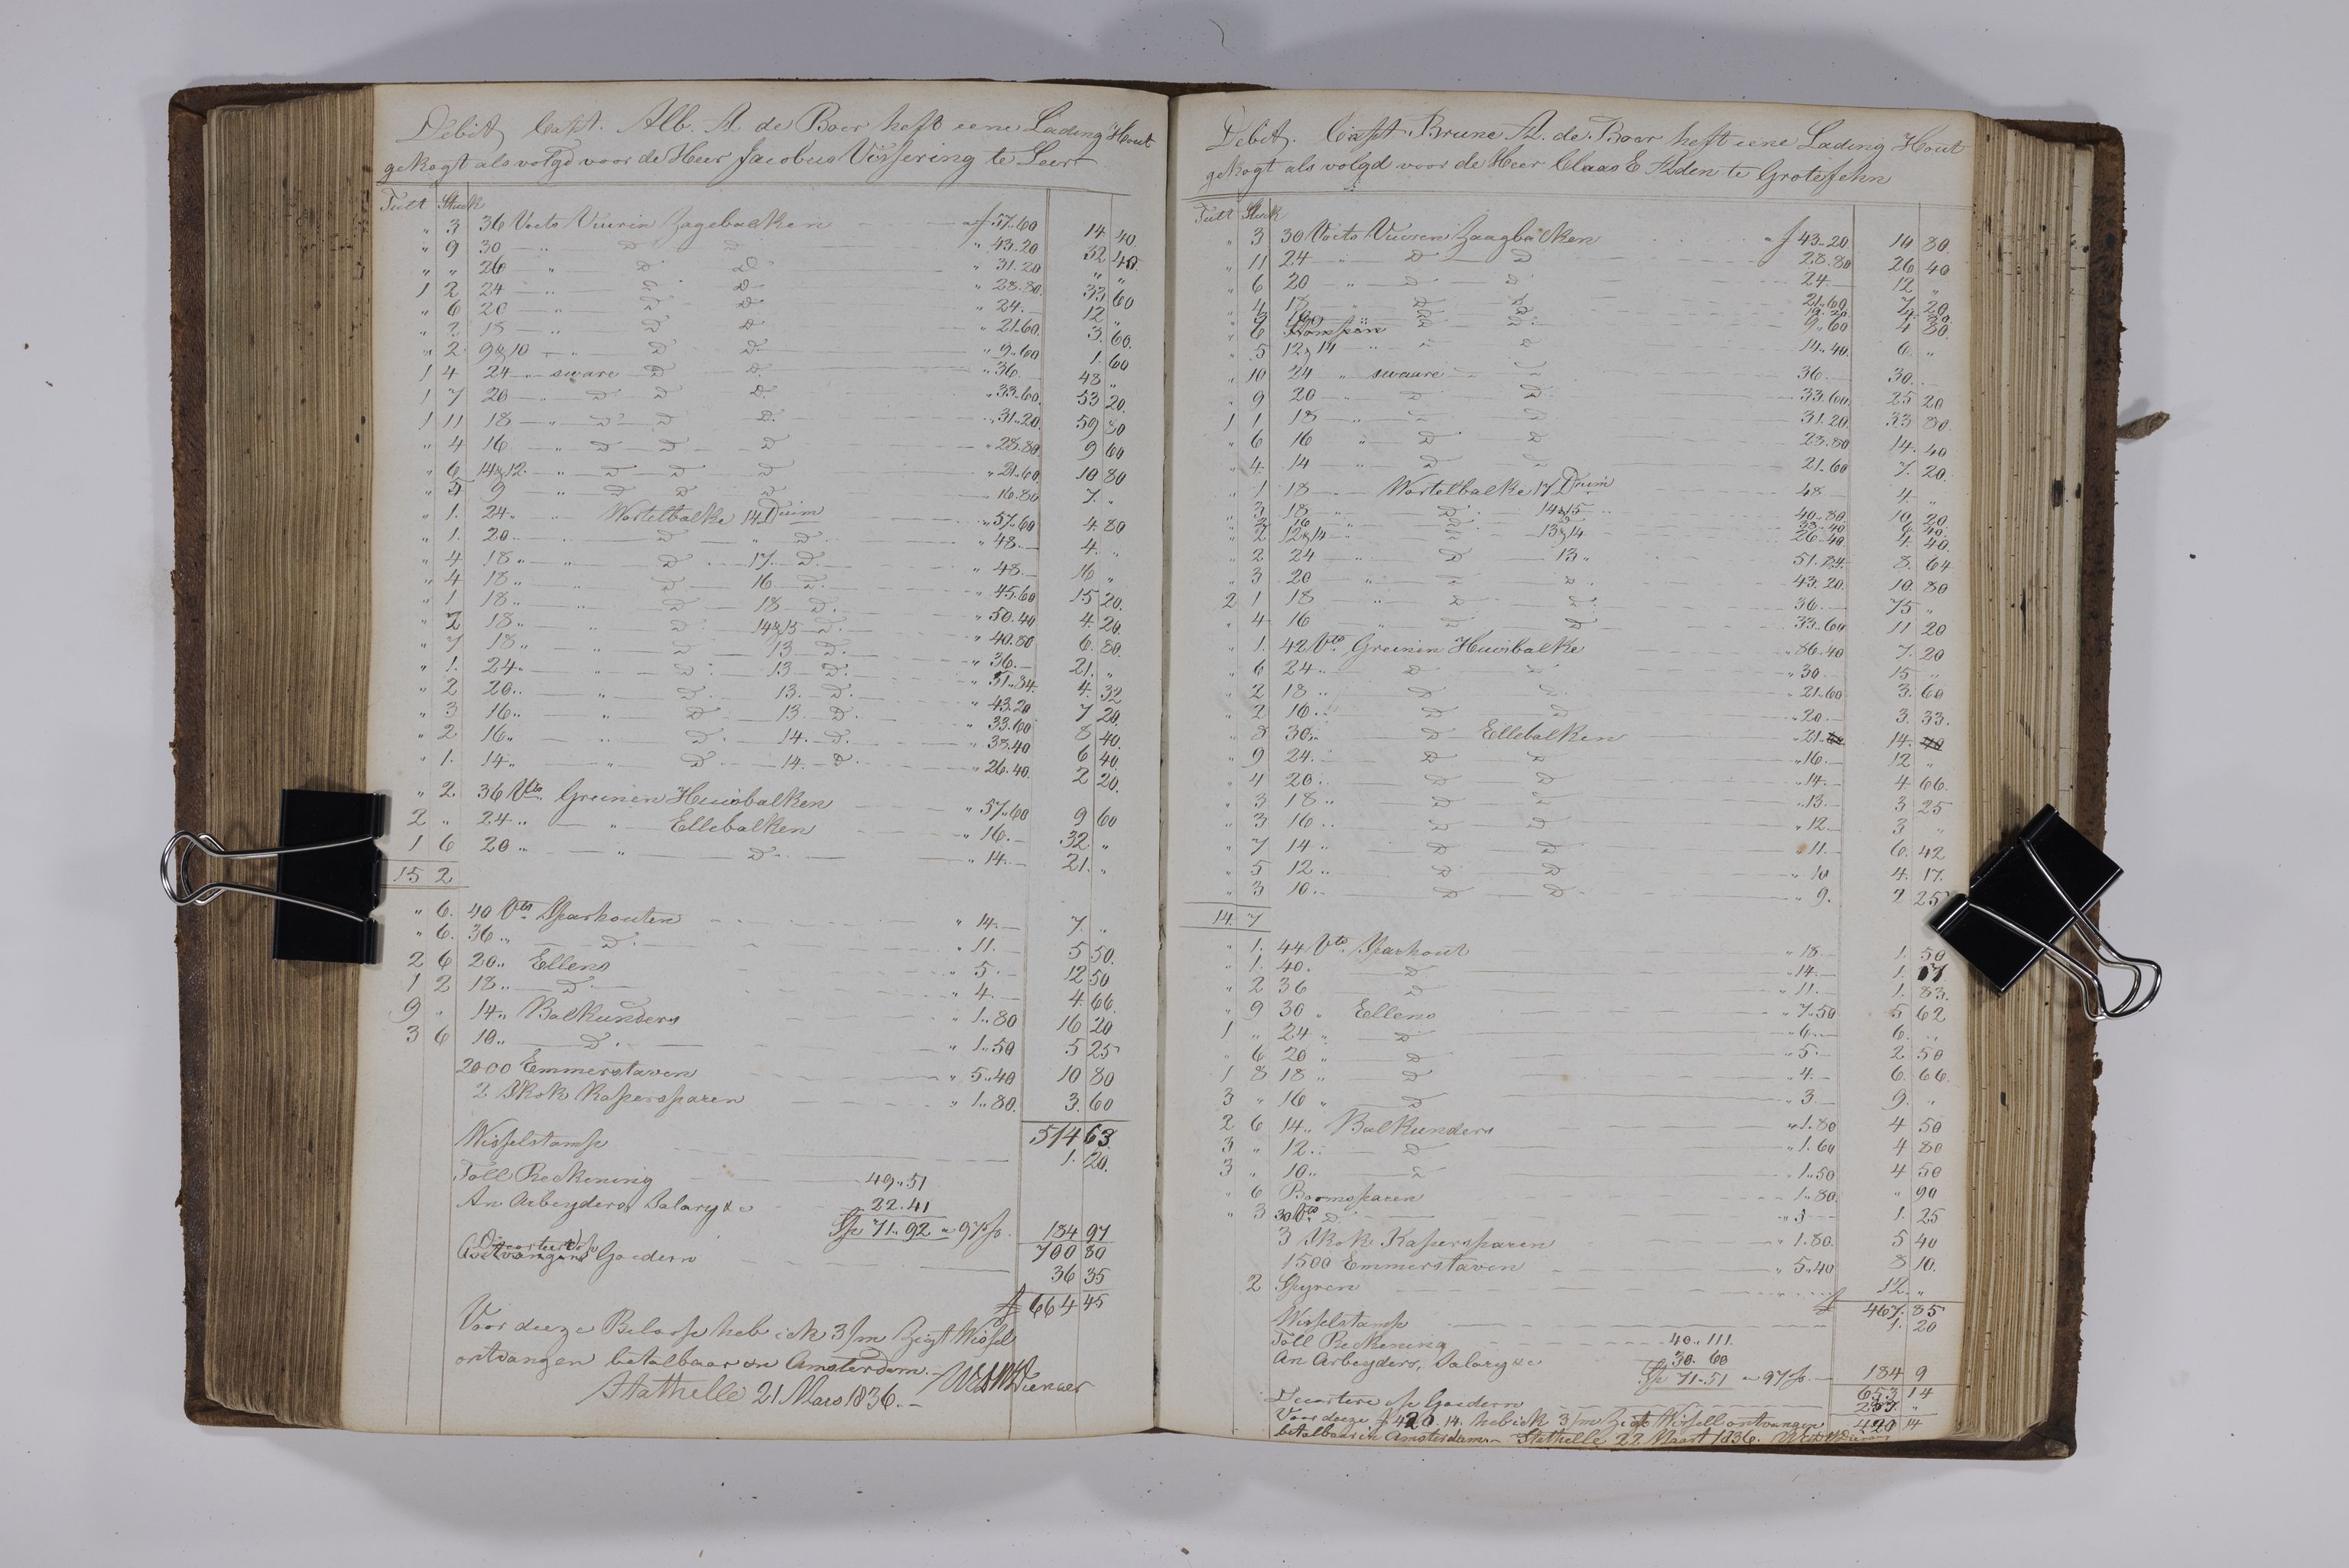 Debit, Capt. Alb. A de Boer heft eene Lading Hout
gekogt als volgd voor de Heer Jacobus Vissering te Leer
Tult Stuck
" 3 36 Voets Vuuren Zagebalken " f 57.60 14 40
" 9 30 " D D " 43.20 32 40
" " 26 " D D " 31.20 " "
1 2 24 " D D " 28.80 33 60
" 6 20 " D D " 24.— 12 "
" 2 18 " D D " 21.60 3. 60
" 2 9 & 10 " D D " 9.60 1. 60
1 4 24 " sware D D " 36.— 48 "
1 7 20 " D D D " 33.60 53 20
1 11 18 " D D D " 31.20 59 80
" 4 16 " D D D " 28.80 9 60
" 6 14 & 12 " D D D " 21.60 10 80
" 5 9 " D D D " 16.80 7. "
" 1. 24 " Wortelbalke 14 Duim " 57.60 4. 80
" 1. 20 " D " D " 48.— 4. "
" 4 18 " " D 17 D " 48.— 16 "
" 4 18 " " D 16 D " 45.60 15 20
" 1 18 " " D 18 D " 50.40 4. 20
" 2 18 " " D 14 & 15 D " 40.80 6. 80
" 7 18 " " D 13 D " 36.— 21. "
" 1. 24 " " D 13 D " 51.84 4. 32
" 2 20 " " D 13. D " 43.20 7 20
" 3 16 " " D 13. D " 33.60 8 40
" 2 16 " " D 14. D " 38.40 6 40
" 1. 14 " " D 14. D " 26.40 2 20
" 2 36 Vts Greinen Huisbalken " 57.60 9 60
2 " 24 " " Ellebalken " 16.— 32. "
1 6 20 " " D " 14.— 21. "
15 2
" 6. 40 Vts Sparhouten " 14.— 7. "
" 6. 36 " D " 11.— 5 50
2 6 20 " Ellens " 5.— 12 50
1 2 18 " D " 4.— 4. 66
9 " 14 " Balkunders " 1.80 16 20
3 6 10 " D " 1.50 5 25
2000 Emmerstaven " 5.40 10 80
2 Skok Kapersparen " 1.80 3. 60
514 63
Wisselstamp 1. 20
Toll Reckening 49.51
An Arbeyders, Salary &c 22.41
Sp 71.92 a 97 p. 184 97
700 80
Goedern 36 35
f 664 45
Voor deeze Belorpe heb ick 3/m Zigt Wissel
ontvangen betalbaar in Amsterdam.
Stathelle 21 Mars 1836.

Debit, Capt. Brune A. de Boer heft eene Lading Hout
gekogt als volgd voor de Heer Claas E Alden te Grotefehn
Tult Stuck
" 3 30 Voets Vuuren Zaagbalken " f 43.20 10 80
" 11 24 " D D 28.80 26 40
" 6 20 " D D 24.— 12 "
" 4 18 " D D 21.60 7. 20
" 6 9.60 4 80
" 5 12 & 14 " D D 14.40 6. "
" 10 24 " swaare D 36.— 30. "
" 9 20 " D D 33.60 25 20
1 1 18 " D D 31.20 33 80
" 6 16 " D D 28.80 14. 40
" 4 14 " D D 21.60 7. 20
" 1 18 " Wortelbalke 17 Duim 48 4 "
" 3 18 " D 14 & 15 40.80 10 20
" 2 16 " D " 38.40 6. 40
" 2 12 & 14 " D 13 & 14 26.40 4. 40
" 2 24 " D 13 " 51.84 8. 64
" 3 20 " D D 43.20 10. 80
2 1 18 " D D 36.— 75 "
" 4 16 " D D 33.60 11 20
" 1. 42 Vts Greinen Huisbalke " 86.40 7. 20
" 6 24 " D D " 30 15 "
" 2 18 " D D " 21.60 3. 60
" 2 16 " D D " 20.— 3. 33
" 8 30 " D Ellebalken " 21 14.
" 9 24 " D D " 16.— 12 "
" 4 20 " D D " 14.— 4 66
" 3 18 " D D " 13.— 3 25
" 3 16 " D D " 12.— 3 "
" 7 14 " D D " 11.— 6. 42
" 5 12 " D D " 10 4. 17
" 3 10 " D D " 9. 2 25
14 7
" 1. 44 Vts Sparhout " 18.— 1. 50
" 1. 40. D " 14.— 1. 17
" 2 36 D " 11.— 1. 83
" 9 30 " Ellens " 7.50 5 62
1 " 24 " D " 6.— 6. "
" 6 20 " D " 5.— 2 50
1 8 18 " D " 4.— 6. 66
3 " 16 " D " 3.— 9. "
2 6 14 " Balkunders " 1.80 4 50
3 " 12 " D " 1.60 4 80
3 " 10 " D " 1.50 4 50
" 6 Boomsparen " 1.80 " 90
" 3 30 Vts D " 5 1. 25
3 Skok Kapersparen " 1.80 5 40
1500 Emmerstaven " 5.40 8 10
2 Spyren 12. "
f 467. 85
Wisselstamp 1. 20
Toll Reckening 40.111
An Arbeyders, Salary &c 30. 60
Sp 71.51 a 97 p. 184 9
653 14
Goedern
Voor deeze f 420.14. heb ick 3/m Zigt Wissell ontvangen 420 14
betalbaar in Amsterdam Stathelle 22. Maart 1836.